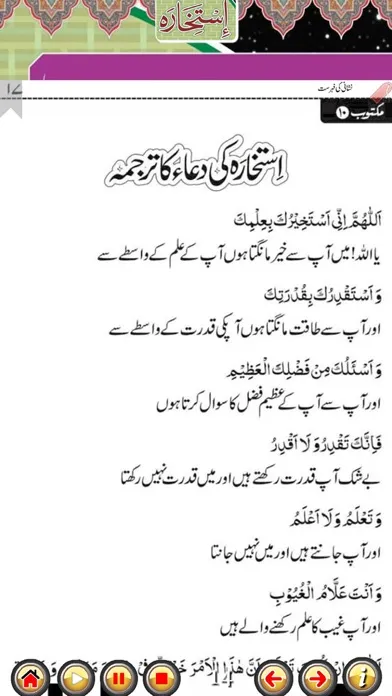 اِسْتِخَارَہ
نشانی کی فہرست
مکتوب ۱۰
اِستخارہ کی دعاء کا ترجمہ
اَللّٰهُمَّ اِنِّىْ اَسْتَخِيْرُكَ بِعِلْمِكَ
یا اللہ! میں آپ سے خیر مانگتا ہوں آپ کے علم کے واسطے سے
وَ اَسْتَقْدِرُكَ بِقُدْرَتِكَ
اور آپ سے طاقت مانگتا ہوں آپکی قدرت کے واسطے سے
وَ اَسْئَلُكَ مِنْ فَضْلِكَ الْعَظِيْمِ
اور آپ سے آپ کے عظیم فضل کا سوال کرتا ہوں
فَاِنَّكَ تَقْدِرُ وَ لَا اَقْدِرُ
بے شک آپ قدرت رکھتے ہیں اور میں قدرت نہیں رکھتا
وَ تَعْلَمُ وَ لَا اَعْلَمُ
اور آپ جانتے ہیں اور میں نہیں جانتا
وَ اَنْتَ عَلَّامُ الْغُيُوْبِ
اور آپ غیب کا علم رکھنے والے ہیں
14